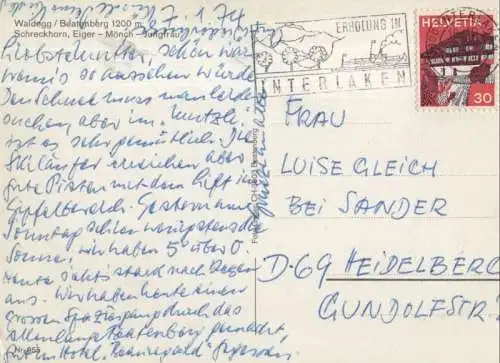 Waldegg / Beatenberg 1200 m
Schreckhorn, Eiger - Mönch - Jungfrau
7.1.74
schön wär
wenn's so aussehen würde
Den Schnee muss man leider
suchen, aber im "Hüttli"
ist es sehr gemütlich. Die
Skiläufer erreichen aber
gute Pisten mit dem Lift im
Gipfelbereich. Gestern am
Sonntag schien wenigstens die
Sonne, wir haben 5° über 0.
Heute sieht's stark nach Regen
aus. Wir haben heute einen
grossen Spaziergang durch das
Beatenberg gemacht,
Hotel "Beauregard" gegessen
Nr. 855
ERHOLUNG IN
INTERLAKEN
HELVETIA
30
FRAU
LUISE GLEICH
BEI SANDER
D-69 HEIDELBERG
GUNDOLFSTR.